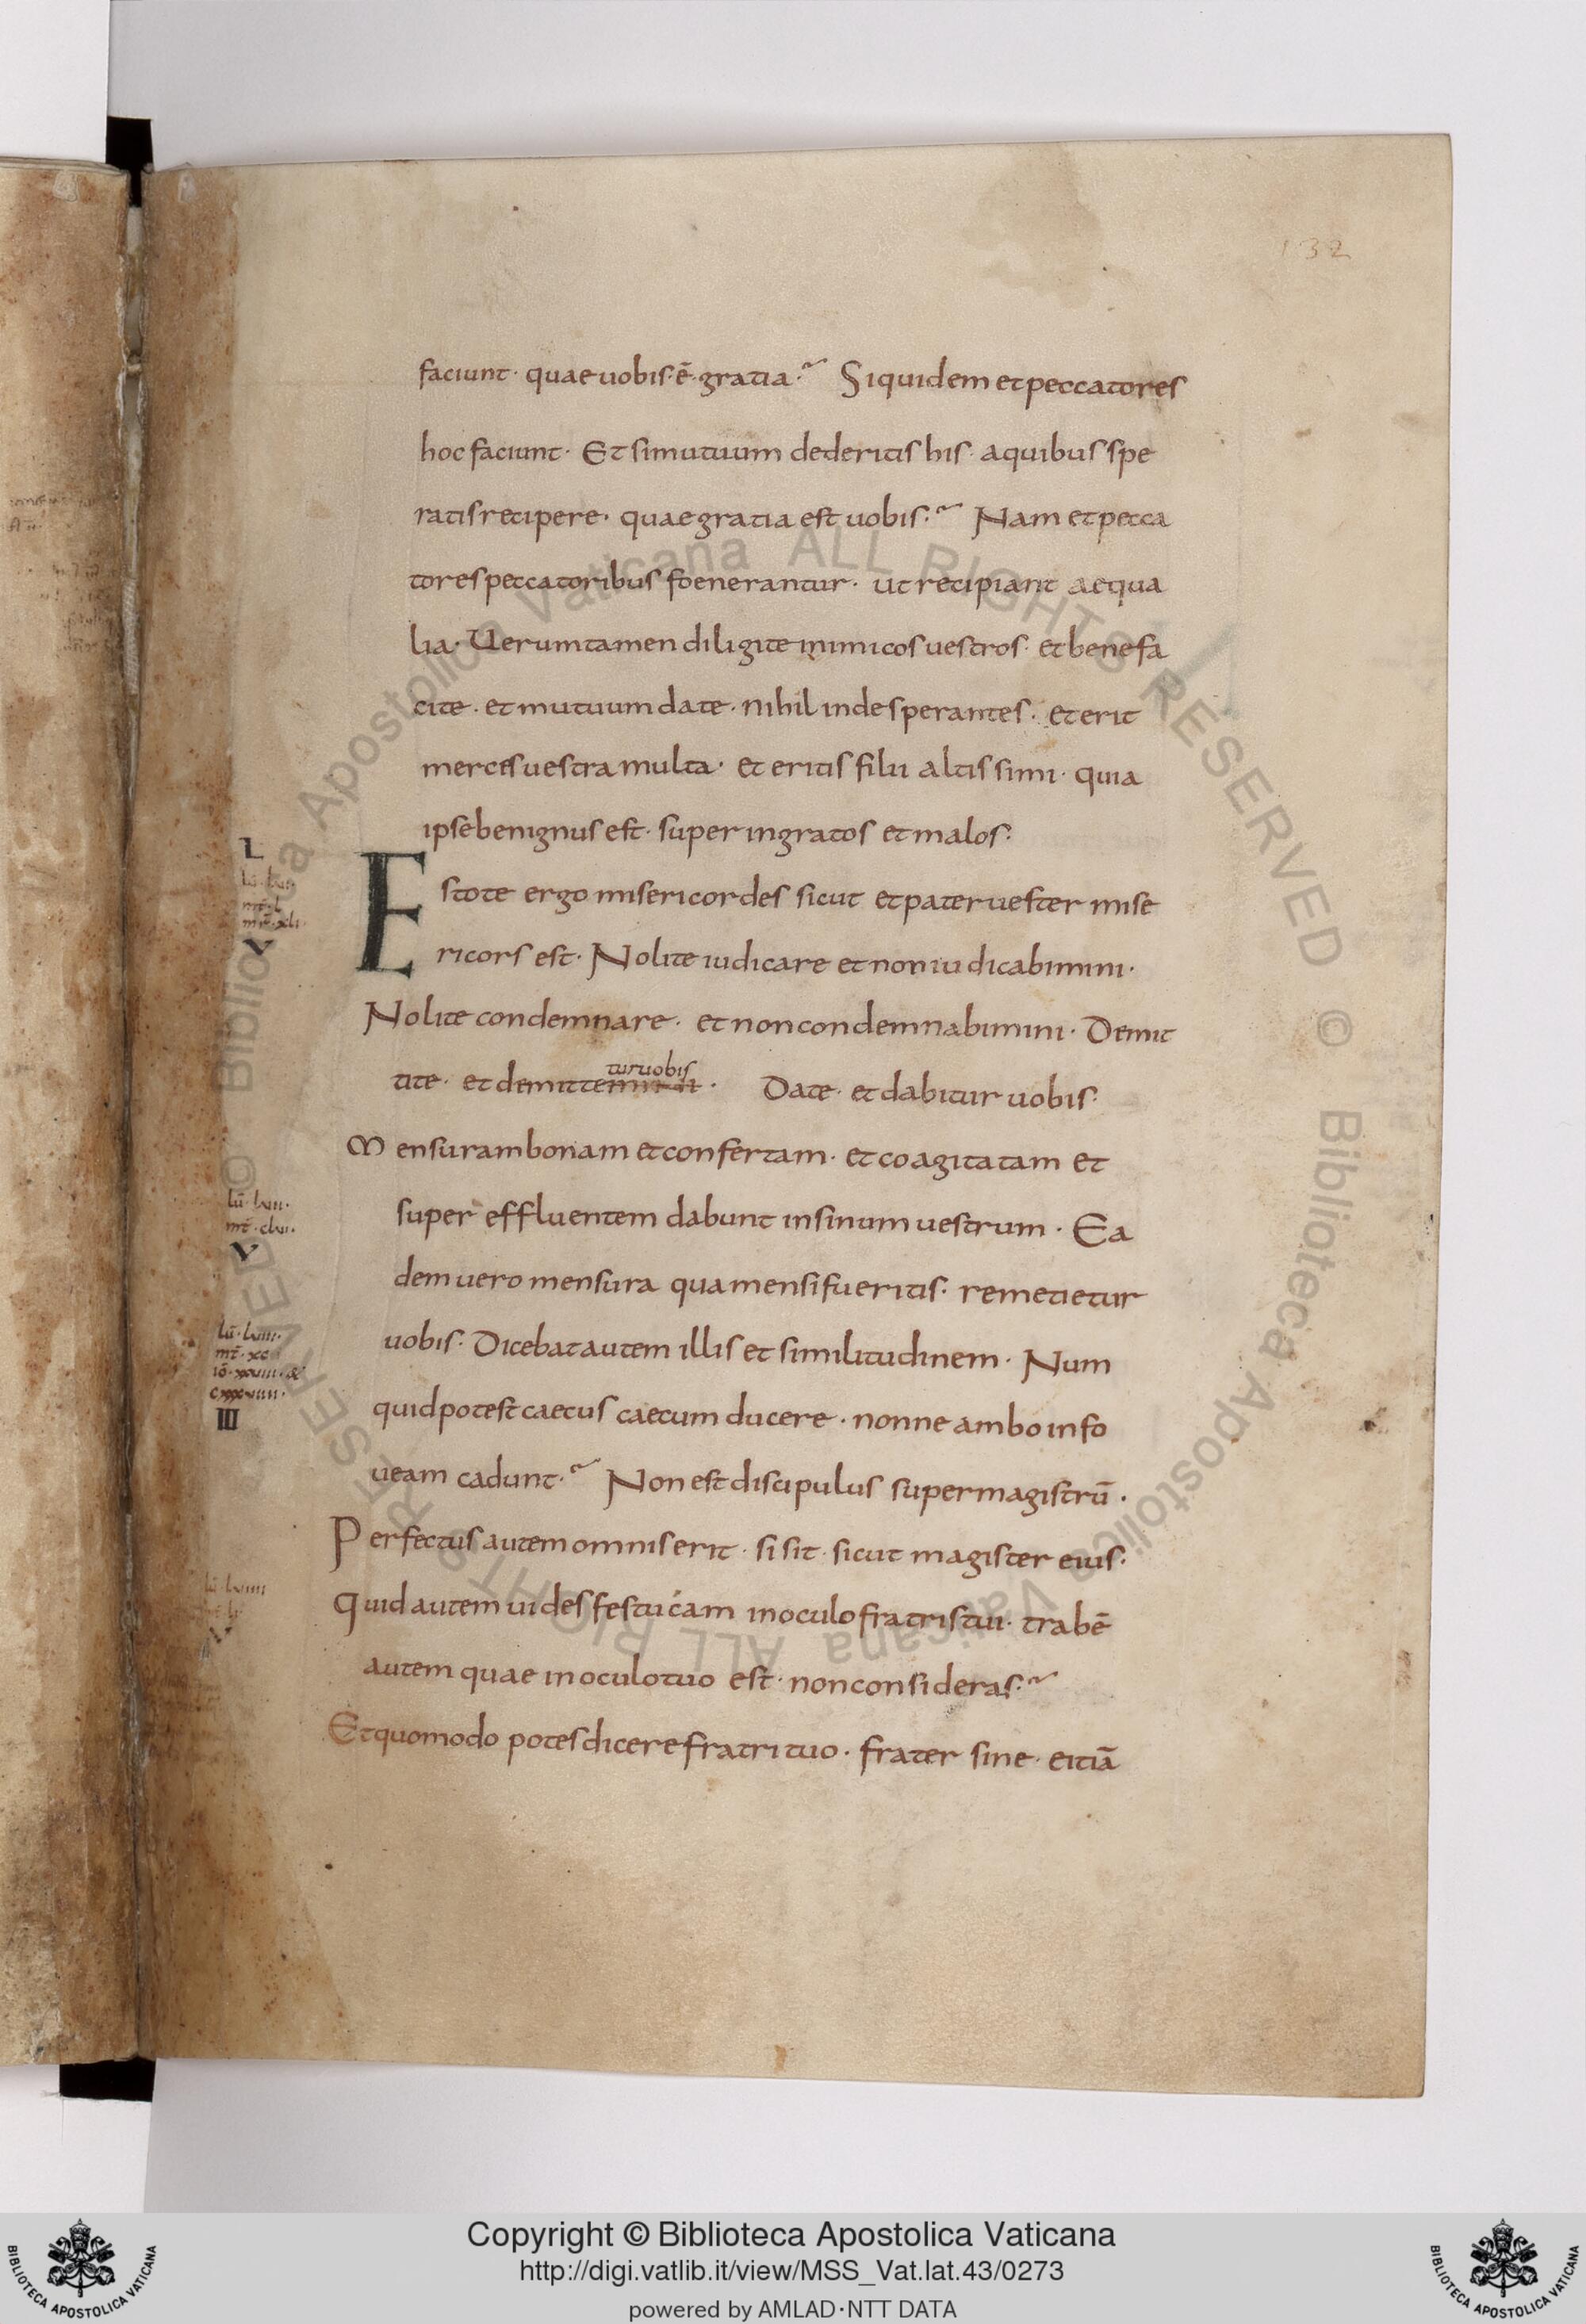 132
faciunt · quae uobis · ē · gratia ·~ Siquidem et peccatores
hoc faciunt · Et si mutuum dederitis his · a quibus spe
ratis recipere · quae gratia est uobis ·~ Nam et pecca
tores peccatoribus foenerantur · ut recipiant aequa
lia · Uerumtamen diligite inimicos uestros · et benefa
cite · et mutuum date · nihil inde sperantes · et erit
merces uestra multa · et eritis filii altissimi · quia
ipse benignus est · super ingratos et malos :
L
V
Estote ergo misericordes sicut et pater uester mise
ricors est · Nolite iudicare et non iudicabimini ·
Nolite condemnare · et non condemnabimini · Demit
tur uobis
tite · et demittemini · Date · et dabitur uobis ·
Mensuram bonam et confertam · et coagitatam et
lū · lvii ·
mr̄ · clvi ·
V
super effluentem dabunt in sinum uestrum · Ea
dem uero mensura qua mensi fueritis · remetietur
lū · lviii ·
III
uobis · Dicebat autem illis et similitudinem · Num
quid potest caecus caecum ducere · nonne ambo in fo
ueam cadunt ·~ Non est discipulus super magistrū ·
Perfectus autem omnis erit · si sit · sicut magister eius ·
Quid autem uides festucam in oculo fratris tui · trabē
autem quae in oculo tuo est · non consideras ·~
Et quomodo potes dicere fratri tuo · frater sine · eitiā
© Biblioteca Apostolica Vaticana ALL RIGHTS RESERVED
© Biblioteca Apostolica Vaticana ALL RIGHTS RESERVED
Copyright © Biblioteca Apostolica Vaticana
http://digi.vatlib.it/view/MSS_Vat.lat.43/0273
powered by AMLAD·NTT DATA
BIBLIOTECA APOSTOLICA VATICANA
BIBLIOTECA APOSTOLICA VATICANA